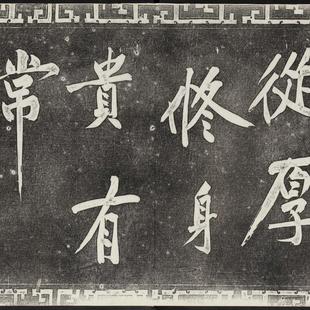 從厚
修身
貴有
常